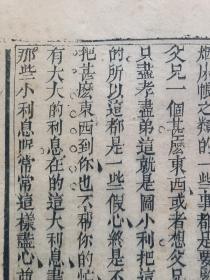 烟酒帳之類的一些車都是要
父兄一個甚麽東西或者想父
只盡孝盡弟這就是圖小利把這
的所以這都是一些假心終是不
把甚麽東西到你也不帮你的忙
有大大的利息在的這大利息書
那些小利息呢常常這樣盡心尊